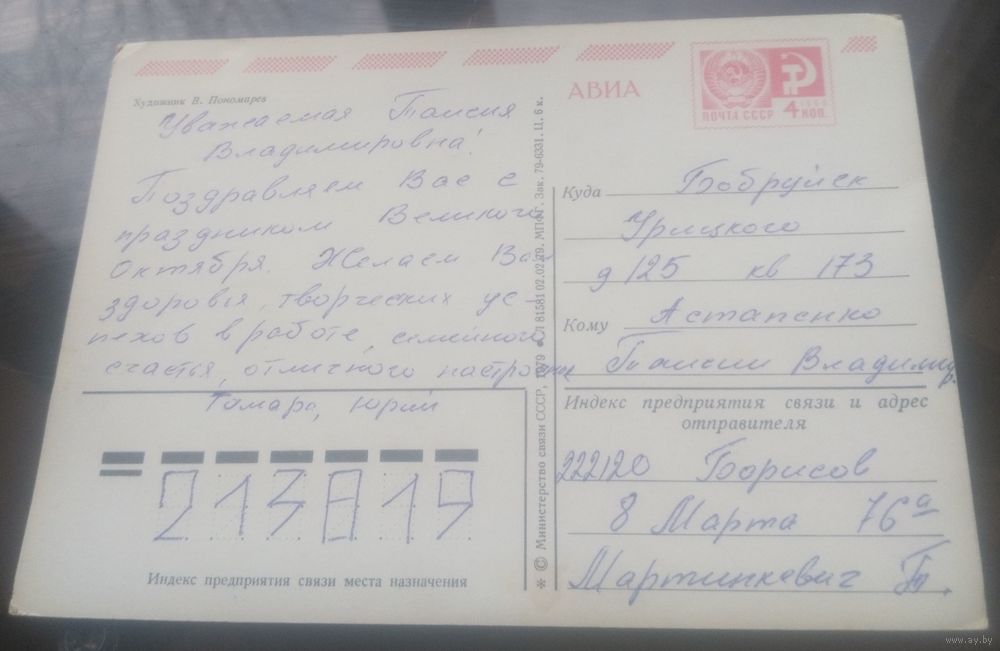 Художник В. Пономарев
Уважаемая Таисия
Владимировна!
Поздравляем Вас с
праздником Великого
Октября. Желаем Вам
здоровья, творческих ус-
пехов в работе, семейного
счастья, отличного настроения
Тамара, Юрий
213819
Индекс предприятия связи места назначения
* © Министерство связи СССР, 1979 Л 81581 02.02.79. МПФГ. Зак. 79-6331. Ц. 6 к.
АВИА
ПОЧТА СССР 4 КОП.
1966
Куда Бобруйск
Урицкого
д 125 кв 173
Кому Астапенко
Таисии Владимир.
Индекс предприятия связи и адрес
отправителя
222120 Борисов
8 Марта 76а
Мартинкевич Т.
www.ay.by